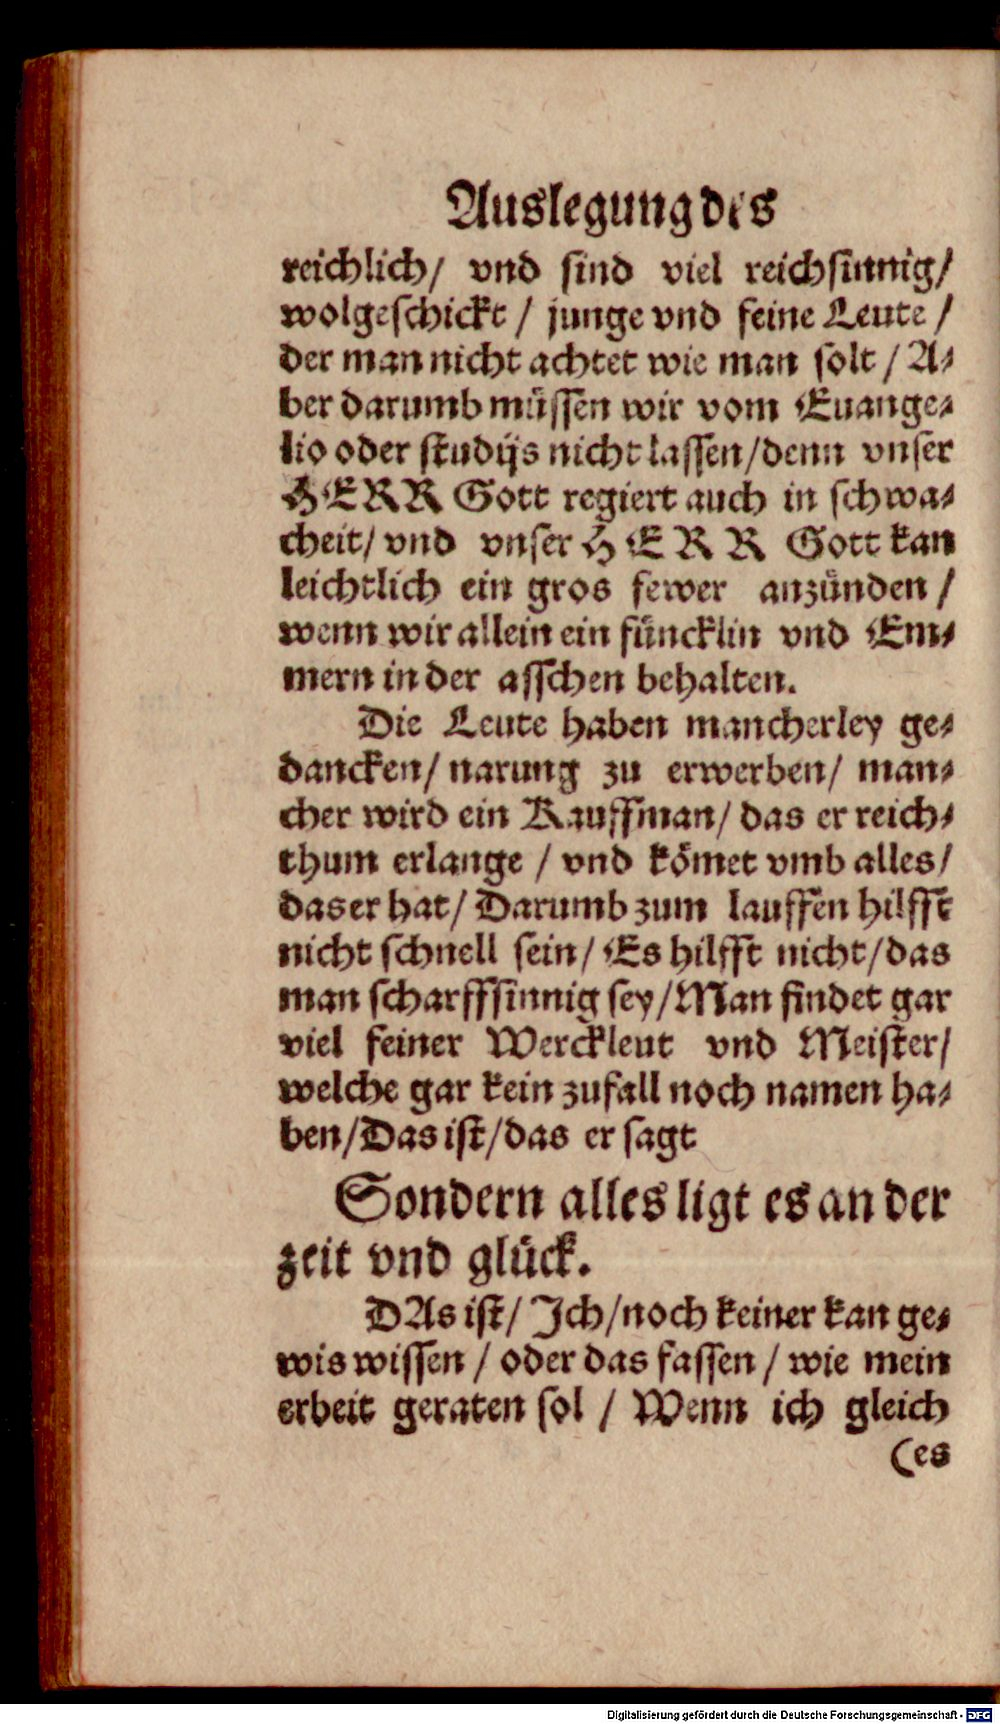 Auslegung des
reichlich/ vnd sind viel reichsinnig/
wolgeschickt / junge vnd feine Leute /
der man nicht achtet wie man solt / A-
ber darumb müssen wir vom Euange-
lio oder studijs nicht lassen/denn vnser
HERR Gott regiert auch in schwa-
cheit/ vnd vnser HERR Gott kan
leichtlich ein gros fewer anzünden /
wenn wir allein ein füncklin vnd Em-
mern in der asschen behalten.
Die Leute haben mancherley ge-
dancken/ narung zu erwerben/ man-
cher wird ein Kauffman/ das er reich-
thum erlange / vnd kömet vmb alles/
das er hat/ Darumb zum lauffen hilfft
nicht schnell sein/ Es hilfft nicht/das
man scharffsinnig sey/Man findet gar
viel feiner Werckleut vnd Meister/
welche gar kein zufall noch namen ha-
ben/Das ist/das er sagt
Sondern alles ligt es an der
zeit vnd glück.
DAs ist/ Ich/noch keiner kan ge-
wis wissen / oder das fassen / wie mein
erbeit geraten sol / Wenn ich gleich
(es
Digitalisierung gefördert durch die Deutsche Forschungsgemeinschaft - DFG